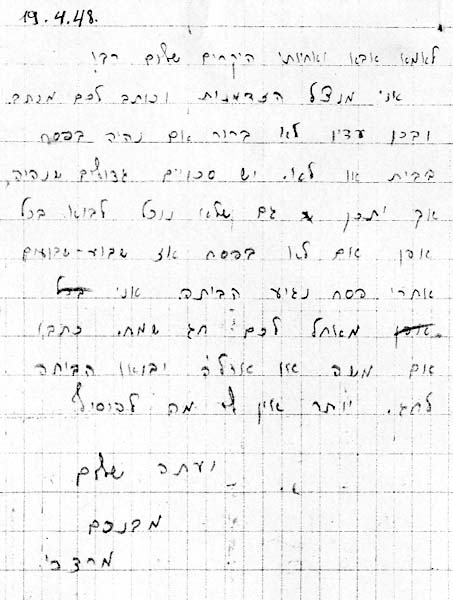 19.4.48.
לאמא אבא ואחיותי היקרים שלום רב!
אני מנצל הזדמנות וכותב לכם מכתב.
ובכן עדין לא ברור אם נהיה בפסח
בבית או לא. יש סכויים גדולים שנהיה,
אך יתכן גם שלא נוכל לבוא. בכל
אופן אם לא בפסח אז שבוע-שבועים
אחרי פסח נגיע הביתה. אני
מאחל לכם: חג שמח. כתבו
אם משה או יבואו הביתה
לחג. יותר אין לי מה להוסיף
ועתה שלום
מבנכם
מרדכי